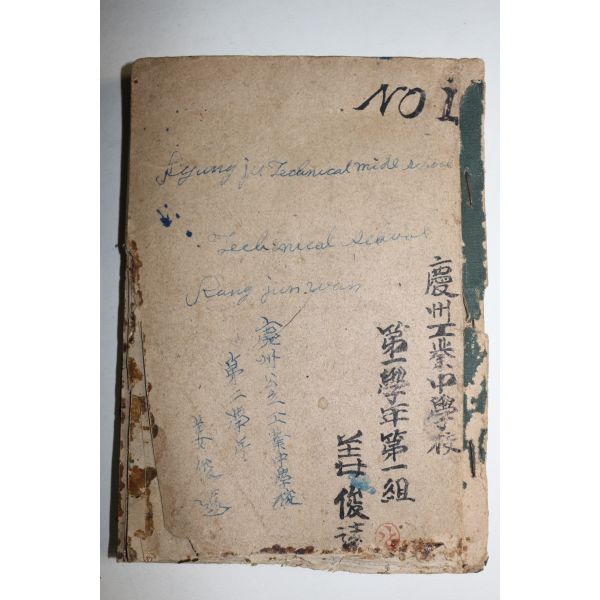 NO 1
Kyung ju Technical midle scwool
Technical scwool
Kang jun wan
慶州工業中學校
第一學年第一組
姜俊
慶州公立工業中學校
第二學年
姜俊